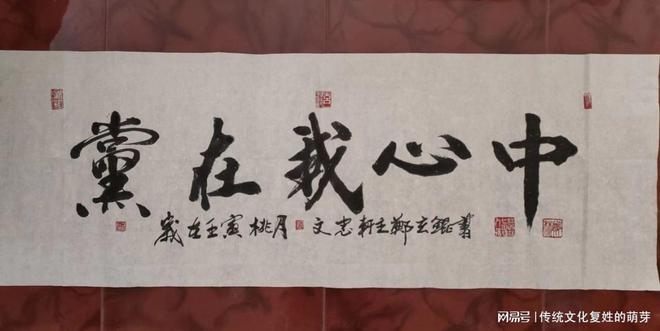 黨在我心中
歲在壬寅桃月 文忠軒主鄭
网易号 | 传统文化复姓的萌芽